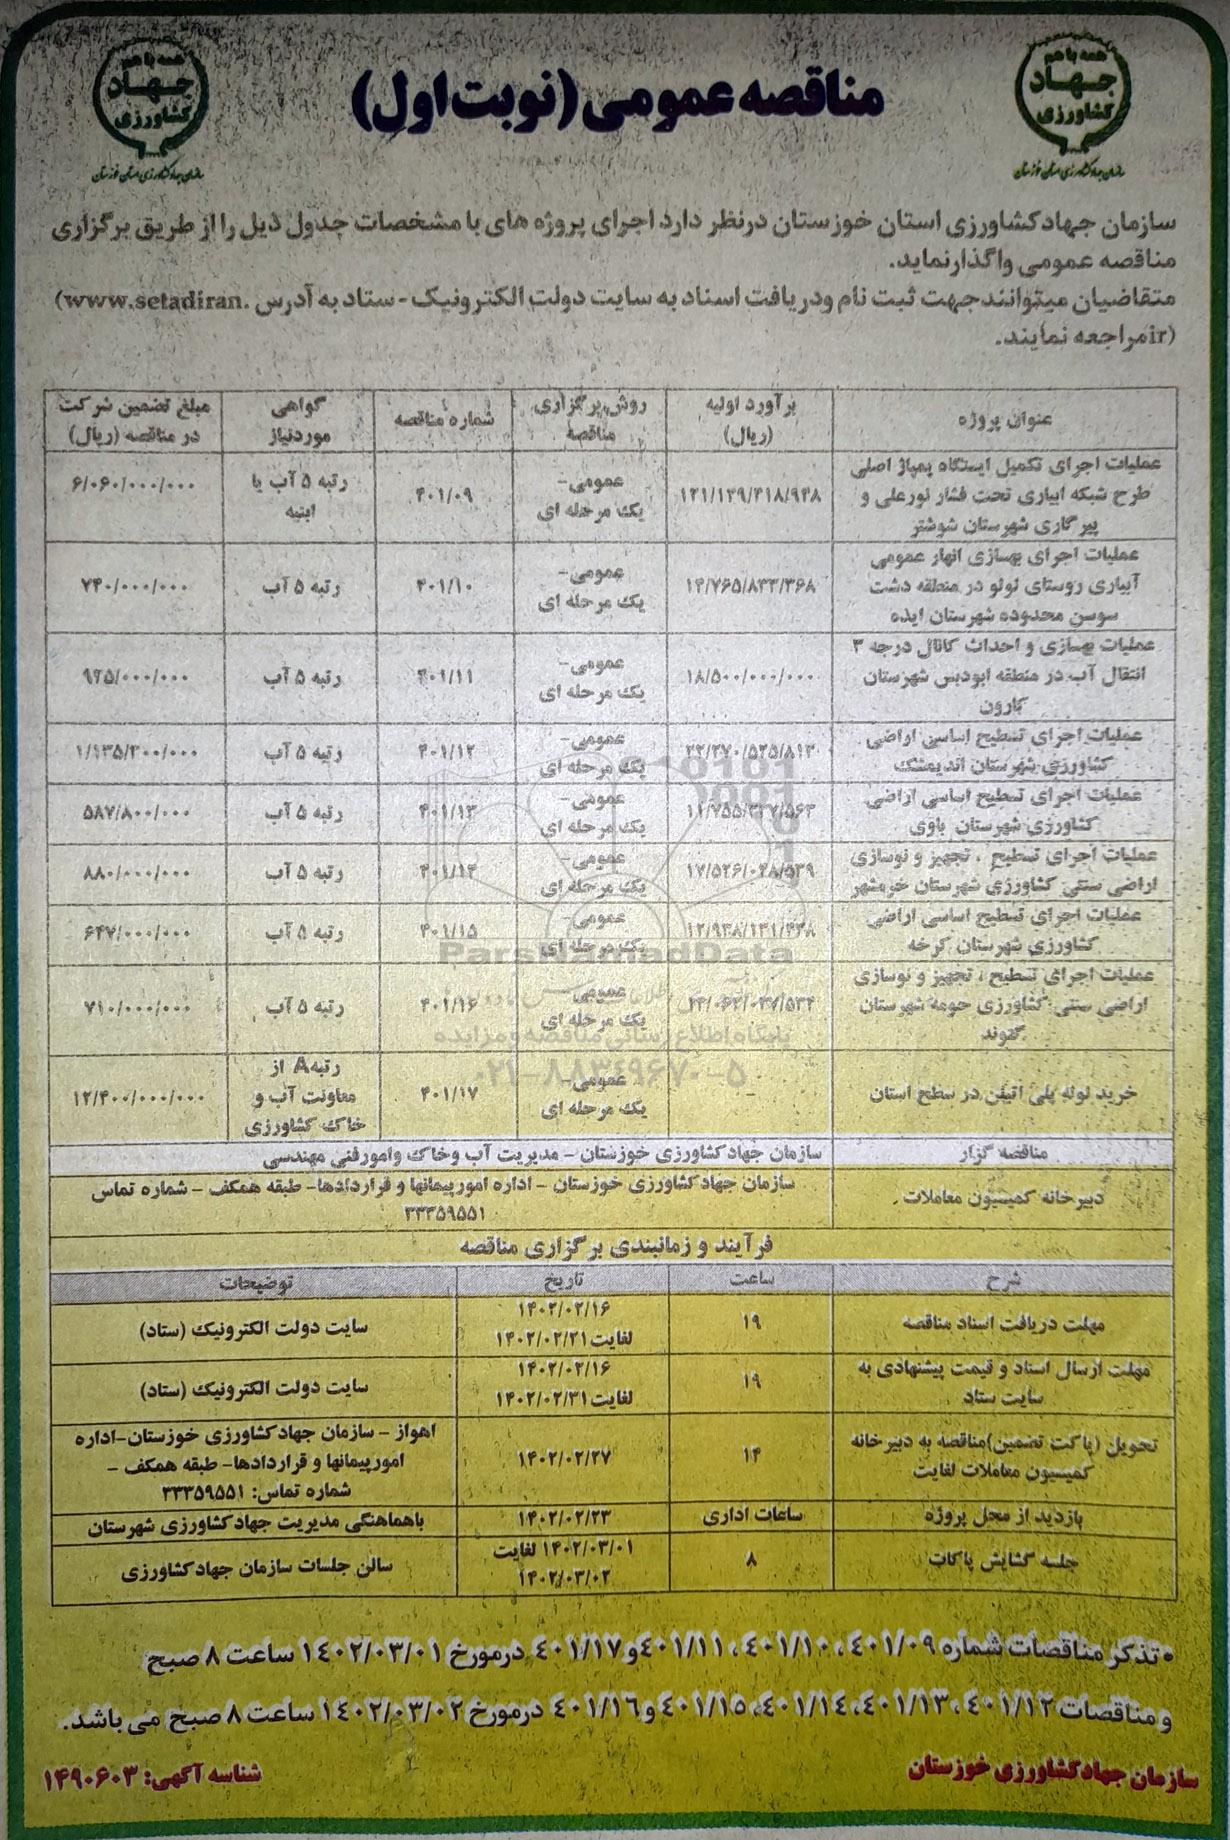 همه با هم
جهاد
کشاورزی
سازمان جهاد کشاورزی استان خوزستان
مناقصه عمومی (نوبت اول)
همه با هم
جهاد
کشاورزی
سازمان جهاد کشاورزی استان خوزستان
سازمان جهادکشاورزی استان خوزستان درنظر دارد اجرای پروژه های با مشخصات جدول ذیل را از طریق برگزاری
مناقصه عمومی واگذارنماید.
متقاضیان میتوانندجهت ثبت نام ودریافت اسناد به سایت دولت الکترونیک - ستاد به آدرس (www.setadiran.
ir)مراجعه نمایند.
عنوان پروژه برآورد اولیه (ریال) روش برگزاری مناقصه شماره مناقصه گواهی موردنیاز مبلغ تضمین شرکت در مناقصه (ریال)
عملیات اجرای تکمیل ایستگاه پمپاژ اصلی
طرح شبکه آبیاری تحت فشار نورعلی و
پیرگاری شهرستان شوشتر
عمومی- یک مرحله ای ۴۰۱/۰۹ رتبه ۵ آب یا ابنیه ۶/۰۶۰/۰۰۰/۰۰۰
عملیات اجرای بهسازی انهار عمومی
آبیاری روستای نولو در منطقه دشت
سوسن محدوده شهرستان ایذه
عمومی- یک مرحله ای ۴۰۱/۱۰ رتبه ۵ آب ۷۴۰/۰۰۰/۰۰۰
عملیات بهسازی و احداث کانال درجه ۳
انتقال آب در منطقه ابودبس شهرستان
کارون
۱۸/۵۰۰/۰۰۰/۰۰۰ عمومی- یک مرحله ای ۴۰۱/۱۱ رتبه ۵ آب ۹۲۵/۰۰۰/۰۰۰
عملیات اجرای تسطیح اساسی اراضی
کشاورزی شهرستان اندیمشک
عمومی- یک مرحله ای ۴۰۱/۱۲ رتبه ۵ آب
عملیات اجرای تسطیح اساسی اراضی
کشاورزی شهرستان باوی
عمومی- یک مرحله ای ۴۰۱/۱۳ رتبه ۵ آب ۵۸۷/۸۰۰/۰۰۰
عملیات اجرای تسطیح ، تجهیز و نوسازی
اراضی سنتی کشاورزی شهرستان خرمشهر
عمومی- یک مرحله ای ۴۰۱/۱۴ رتبه ۵ آب ۸۸۰/۰۰۰/۰۰۰
عملیات اجرای تسطیح اساسی اراضی
کشاورزی شهرستان کرخه
عمومی- یک مرحله ای ۴۰۱/۱۵ رتبه ۵ آب ۶۴۷/۰۰۰/۰۰۰
عملیات اجرای تسطیح ، تجهیز و نوسازی
اراضی سنتی کشاورزی حومه شهرستان
گتوند
عمومی- یک مرحله ای ۴۰۱/۱۶ رتبه ۵ آب ۷۱۰/۰۰۰/۰۰۰
خرید لوله پلی اتیلن در سطح استان - عمومی- یک مرحله ای ۴۰۱/۱۷ رتبه A از معاونت آب و خاک کشاورزی ۱۲/۴۰۰/۰۰۰/۰۰۰
مناقصه گزار سازمان جهاد کشاورزی خوزستان - مدیریت آب وخاک وامورفنی مهندسی
دبیرخانه کمیسیون معاملات سازمان جهاد کشاورزی خوزستان - اداره امورپیمانها و قراردادها- طبقه همکف - شماره تماس
۳۳۳۵۹۵۵۱
فرآیند و زمانبندی برگزاری مناقصه
شرح ساعت تاریخ توضیحات
مهلت دریافت اسناد مناقصه ۱۹ ۱۴۰۲/۰۲/۱۶ لغایت ۱۴۰۲/۰۲/۲۱ سایت دولت الکترونیک (ستاد)
مهلت ارسال اسناد و قیمت پیشنهادی به
سایت ستاد
۱۹ ۱۴۰۲/۰۲/۱۶ لغایت ۱۴۰۲/۰۲/۳۱ سایت دولت الکترونیک (ستاد)
تحویل (پاکت تضمین)مناقصه به دبیرخانه
کمیسیون معاملات لغایت
۱۴ ۱۴۰۲/۰۲/۲۷
اهواز - سازمان جهاد کشاورزی خوزستان-اداره
امورپیمانها و قراردادها- طبقه همکف -
شماره تماس: ۳۳۳۵۹۵۵۱
بازدید از محل پروژه ساعات اداری ۱۴۰۲/۰۲/۲۳ باهماهنگی مدیریت جهاد کشاورزی شهرستان
جلسه گشایش پاکات ۸ ۱۴۰۲/۰۳/۰۱ لغایت ۱۴۰۲/۰۳/۰۲ سالن جلسات سازمان جهادکشاورزی
• تذکر مناقصات شماره ۴۰۱/۰۹، ۴۰۱/۱۰، ۴۰۱/۱۱و ۴۰۱/۱۷ درمورخ ۱۴۰۲/۰۳/۰۱ ساعت ۸ صبح
و مناقصات ۴۰۱/۱۲، ۴۰۱/۱۳، ۴۰۱/۱۴، ۴۰۱/۱۵ و ۴۰۱/۱۶ درمورخ ۱۴۰۲/۰۳/۰۲ ساعت ۸ صبح می باشد.
سازمان جهادکشاورزی خوزستان
شناسه آگهی: ۱۴۹۰۶۰۳
ParsNamadData
پایگاه اطلاع رسانی مناقصه و مزایده
۰۲۱-۸۸۳۴۹۶۷۰-۵